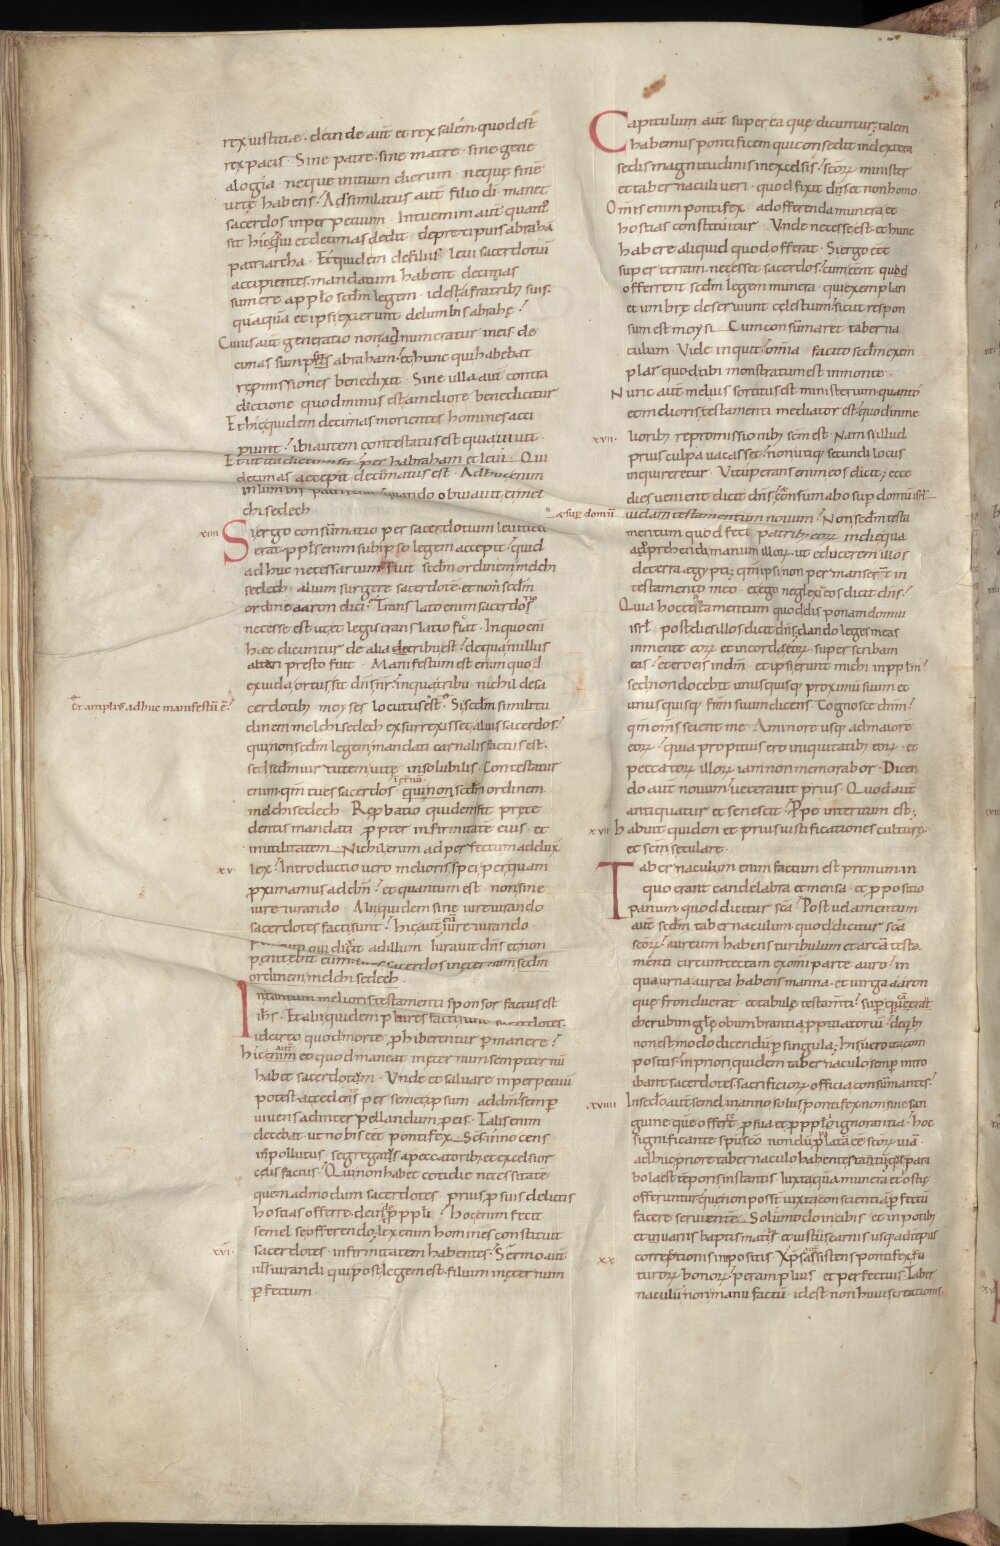 rex iustitiæ · deinde aut̄ et rex salem · quod est
rex pacis · Sine patre · sine matre · sine gene
alogia · neque initium dierum · neque finē
uitę habens · Adsimilatus aut̄ filio dī · manet
sacerdos inper petuum · Intuemini aut̄ quant
sit hic cui et decimas dedit de precipuis abraha
patriarcha · Et quidem de filiis leui sacerdotiū
accipientes · mandatum habent decimas
sumere a pplo scdm legem · id est a fratrib; suis ·
quaquā et ipsi exierunt de lumbis abrahę
Cuius aut̄ generatio non adnumeratur in eis de
cimas sumpsit abraham · et hunc qui habebat
repmissiones benedixit · Sine ulla aut̄ contra
dictione quod minus est a meliore benedicitur
Et hic quidem decimas morientes homines acci
piunt · ibi autem contestatus est quia uiuit ·
Et ut ita dictum sit per habraham et leui · Qui
decimas accepit decimatus est · Adhuc enim
in lumbis patris quando obuiauit ei mel
chisedech
xiiii
Si ergo consūmatio per sacerdotium leuiticū
erat · ppls enim sub ipso legem accepit · quid
adhuc necessarium fuit scdm ordinem melchi
sedech · alium surgere sacerdotē · et non scdm
ordinē aaron dici · Translato enim sacerdotio
necesse est ut et legis translatio fiat · In quo enī
haec dicuntur de alia tribu est · de qua nullus
altari presto fuit · Manifestum est enim quod
ex iuda ortus sit dns nr · in qua tribu nichil de sa
et amplius adhuc manifestū ē
cerdotib; moyses locutus est · Si scdm similitu
dinem melchisedech exsurrexisset alius sacerdos ·
qui non scdm legem mandati carnalis factus est ·
sed scdm uirtutem uitę insolubilis · Contestatur
enim qm tu es sacerdos in etnū · qui non scdm ordinem
melchisedech · Reprobatio quidem fit prece
dentis mandati propter infirmitatē eius · et
inutilitatem · Nichil enim ad perfectum addux
xv
lex · Introductio uero melioris spei per quam
proximamus ad dm · et quantum est non sine
iure iurando · Alii quidem sine iure iurando
sacerdotes facti sunt · hic aut̄ cū iure iurando ·
per eum qui dixit ad illum · Iurauit dns et non
penitebit eum tu es sacerdos in ęternum scdm
ordinem melchisedech ·
In tantum melioris testamenti sponsor factus est
ihs · Et alii quidem plures facti sunt sacerdotes ·
idcirco quod morte prohiberentur permanere
hic aut̄ eo quod maneat in ęternum sempiternū
habet sacerdotium · Unde et saluare in perpetuū
potest accedens per semetipsum ad dm semp
uiuens ad interpellandum p eis · Talis enim
decebat ut nobis eet pontifex · Scs innocens
inpollutus segregatus a peccatorib; et excelsior
celis factus · Qui non habet cotidie necessitatē
quemadmodum sacerdotes prius p suis delictis
hostias offerre · deinde p ppli · hoc enim fecit
semel se offerendo · lex enim homines constituit
xvi
sacerdotes infirmitatem habentes · Sermo aut̄
iusiurandi qui post legem est · filium in ęternum
perfectum ·
Capitulum aut̄ super ea quę dicuntur; talem
habemus pontificem qui consedit in dextera
sedis magnitudinis in excelsis · scorum minister
et tabernaculi ueri · quod fixit dns et non homo
Omnis enim pontifex ad offerenda munera et
hostias constituitur · Unde necesse est et hunc
habere aliquid quod offerat · Si ergo eet
super terram · nec esset sacerdos · cum eent quod
offerrent scdm legem munera · qui exemplari
et umbrę deseruiunt celestium · sicut respon
sum est moysi · Cum consūmaret taberna
culum · Uide inquit omnia facito scdm exem
plar quod tibi monstratum est in monte ·
Nunc aut̄ melius sortitus est ministerium quantō
et melioris testamenti mediator est · quod in me
xvii
lioribus repromissionib; scm est · Nam si illud
prius culpa uacasset · non utiq; secundi locus
inquireretur · Uituperans enim eos dicit; ecce
dies uenient dicit dns · consumabo sup domū isrl
& sup domū
iuda testamentum nouum · Non scdm testa
mentum quod feci patrib; eorum in die qua
adprehendi manum illorum · ut educerem illos
de terra ęgypti; qm ipsi non permanserunt in
testamento meo · et ego neglexi eos dicit dns
Quia hoc testamentum quod disponam domui
isrl post dies illos dicit dns; dando leges meas
in mente eorum et in corda eorum superscribam
eas · et ero eis in dm et ipsi erunt michi in pplm
sed non docebit unusquisq; proximū suum et
unusquisq; frm suum dicens · Cognosce dnm
qm oms scient me · A minore usq; ad maiorē
eorum · quia propitius ero iniquitatib; eorum et
peccatorum illorum iam non memorabor · Dicen
do aut̄ nouum ueterauit prius · Quod aut̄
antiquatur et senescit · Prope interitum est;
xviii
habuit quidem et prius iustificationes culturę ·
et scm seculare ·
Tabernaculum enim factum est primum in
quo erant candelabra et mensa · et propositio
panum quod dicitur scā · Post uelamentum
aut̄ scdm tabernaculum quod dicitur scā
scorum · aureum habens turibulum et arcā testa
menti circumtectam ex omni parte auro · in
qua urna aurea habens manna · et uirga aaron
quę fronduerat et tabulę testamti · super quę erant
cherubin glę obumbrantia propitiatoriū · de quib;
non est modo dicendū p singula; his uero ita com
positis · in priori quidem tabernaculo semp intro
ibant sacerdotes sacrificiorum officia consūmantes
xviiii
In scdo aut̄ semel in anno solus pontifex non sine san
guine que offert p sua et p ppli ignorantia · hoc
significante spu sco nondū p latā ee scorum uiā ·
adhuc priore tabernaculo habente statū quę para
bola est temporis instantis · Iuxta quā munera et hostię
offeruntur quę non possunt iuxta conscientiā pfectū
facere seruientē · Solūmodo in cibis et in potib;
et in uariis baptismatis et iustitiis carnis usq; ad tempus
xx
correptionis inpositis · Xps aut̄ assistens pontifex fu
turorum bonorum · per amplius et perfectius taber
naculū non manu factū · id est non huius creationis